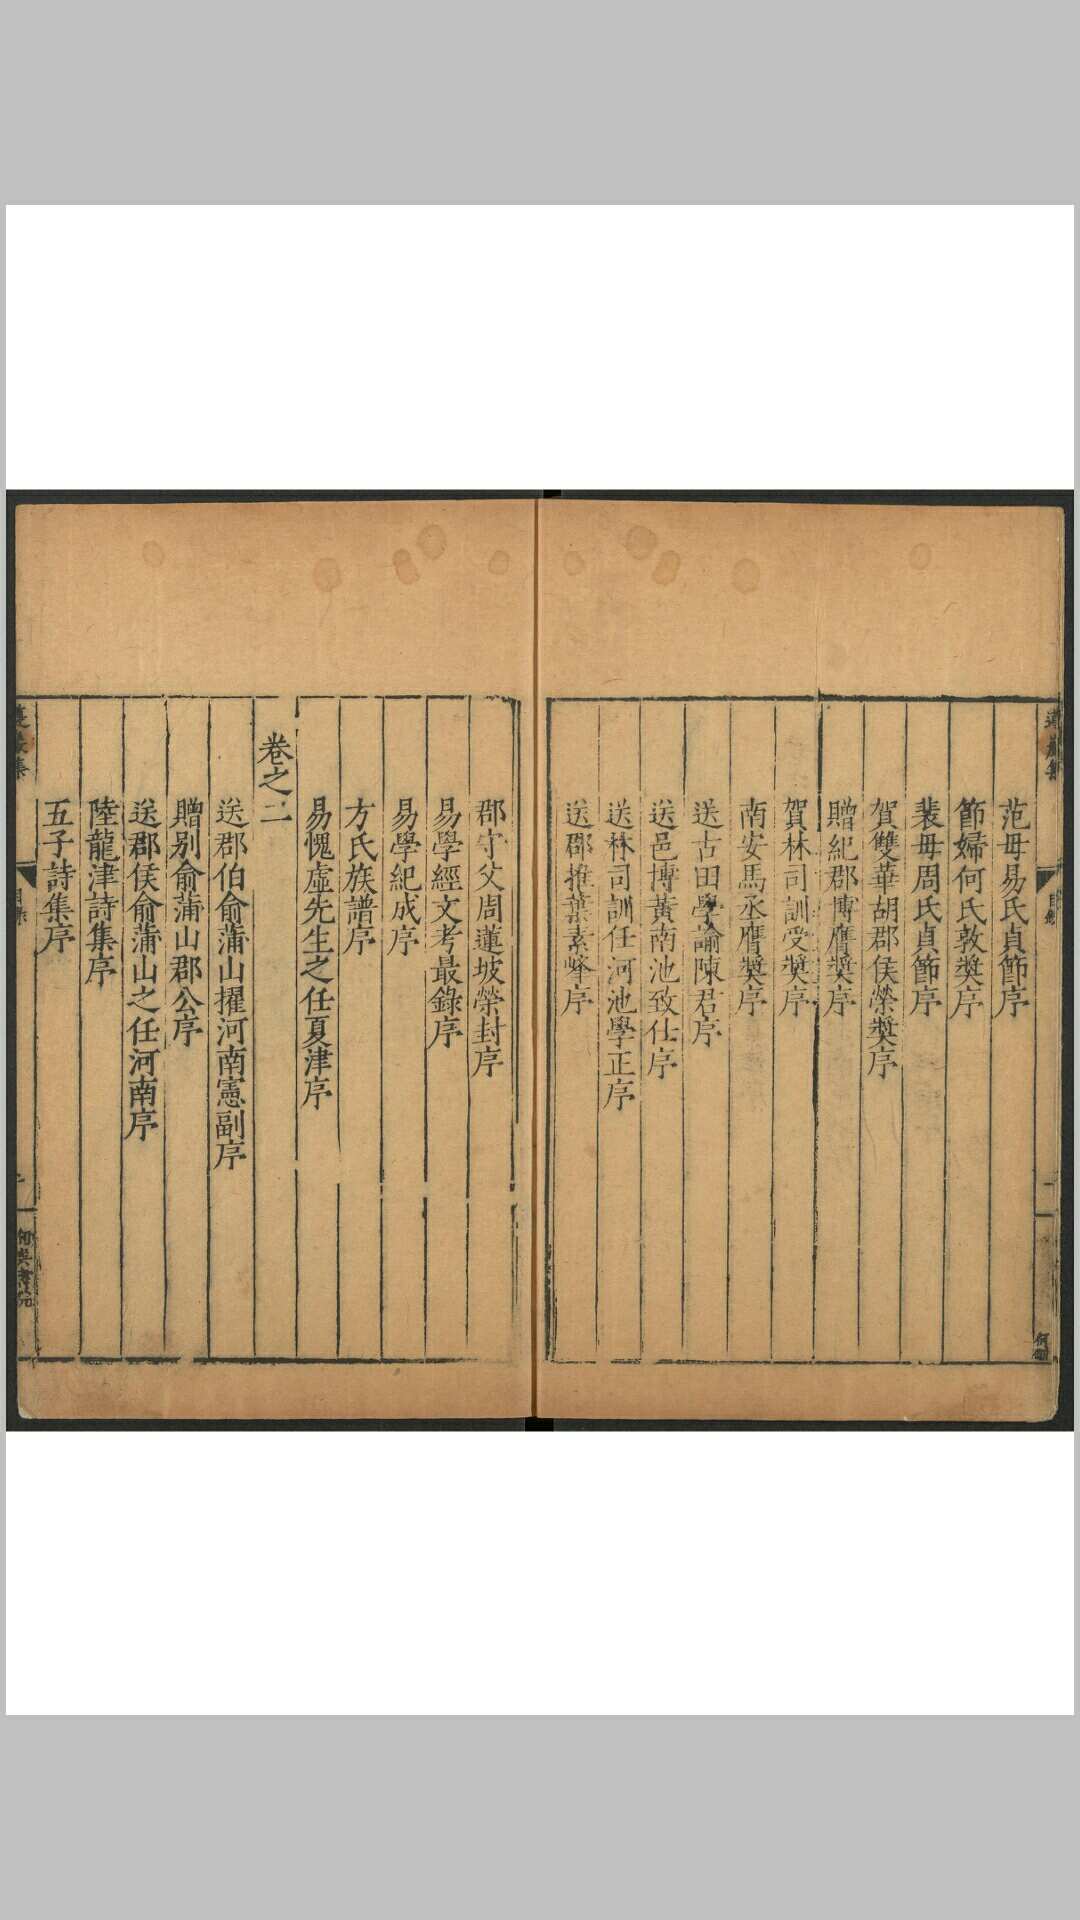 范母易氏貞節序
節婦何氏敦獎序
裴母周氏貞節序
賀雙華胡郡侯榮獎序
贈紀郡博膺獎序
賀林司訓受獎序
南安馬丞膺獎序
送古田學諭陳君序
送邑博黃南池致仕序
送林司訓任河池學正序
送郡推葉素峰序
郡守父周蓮坡榮封序
易學經文考最錄序
易學紀成序
方氏族譜序
易愧虛先生之任夏津序
卷之二
送郡伯俞蒲山擢河南憲副序
贈別俞蒲山郡公序
送郡侯俞蒲山之任河南序
陸龍津詩集序
五子詩集序